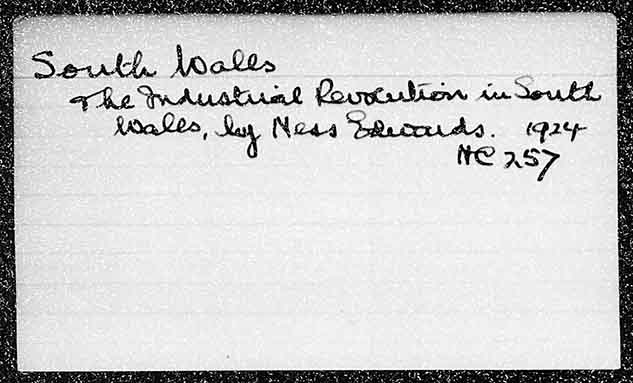 South Wales
The Industrial Revolution in South
Wales, by Ness Edwards. 1924
HC 257